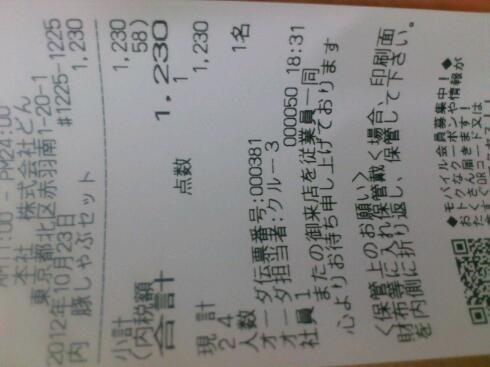 AM11:00 - PM24:00
本社 株式会社どん
東京都北区赤羽南1-20-1
2012年10月23日 #1225-1225
内 豚しゃぶセット 1,230
小計 1,230
(内税額 58)
合計 1,230
点数 1
現計 1,230
2 4
人数 1名
オーダ伝票番号:000381
オーダ担当者:クルー3
社員1 000050 18:31
またの御来店を従業員一同
心よりお待ち申し上げております
<保管上のお願い>
財布等に入れ保管戴く場合、印刷面
を内側に折り返し、保管して下さい。
◆モバイル会員募集中!◆
クーポンや情報が
たくさん届きます!